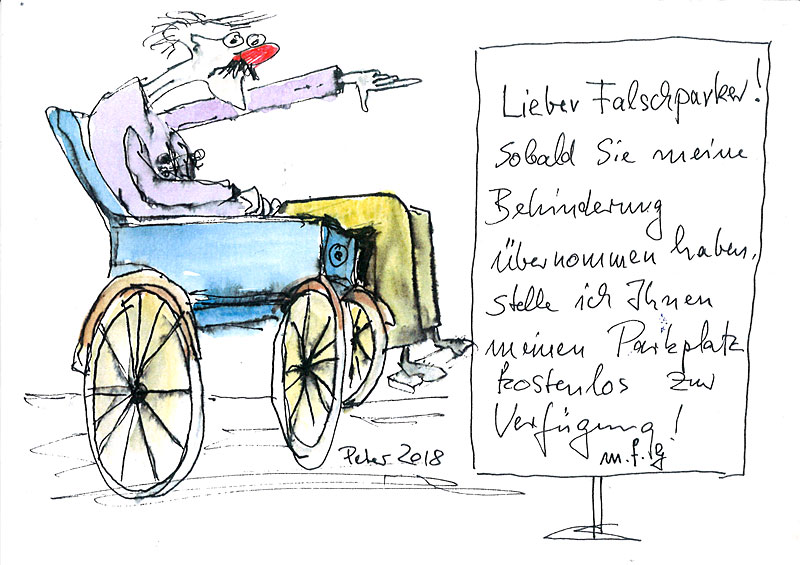 Lieber Falschparker!
Sobald Sie meine
Behinderung
übernommen haben,
stelle ich Ihnen
meinen Parkplatz
kostenlos zur
Verfügung!
m.f.g
Peter 2018